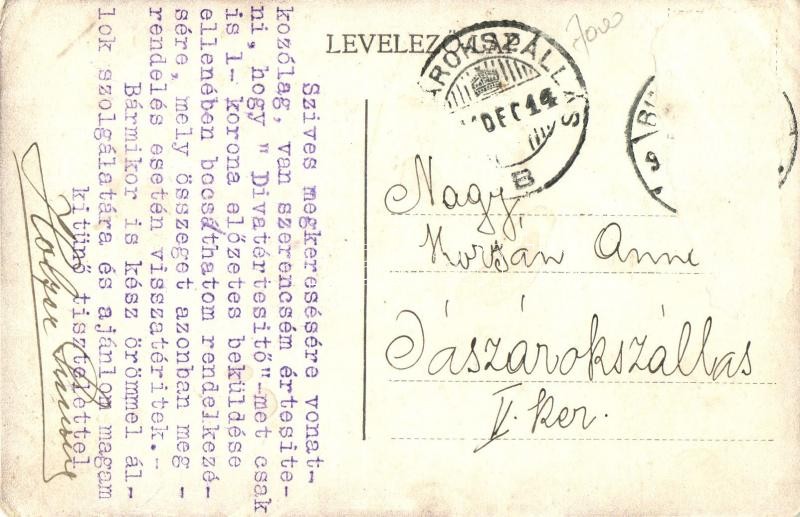 LEVELEZŐ-LAP
ÁROKSZÁLLÁS
DEC 14
B
Szives megkeresésére vonat-
kozólag, van szerencsém értesite-
ni, hogy " Divatértesitő"-met csak
is 1- korona előzetes beküldése
ellenében bocsáthatom rendelkezé-
sére, mely összeget azonban meg -
rendelés esetén visszatéritek.-
Bármikor is kész örömmel ál-
lok szolgálatára és ajánlom magam
kitünő tisztelettel
Holzer
Nagy,
Anne
Jászárokszállas
V. ker.